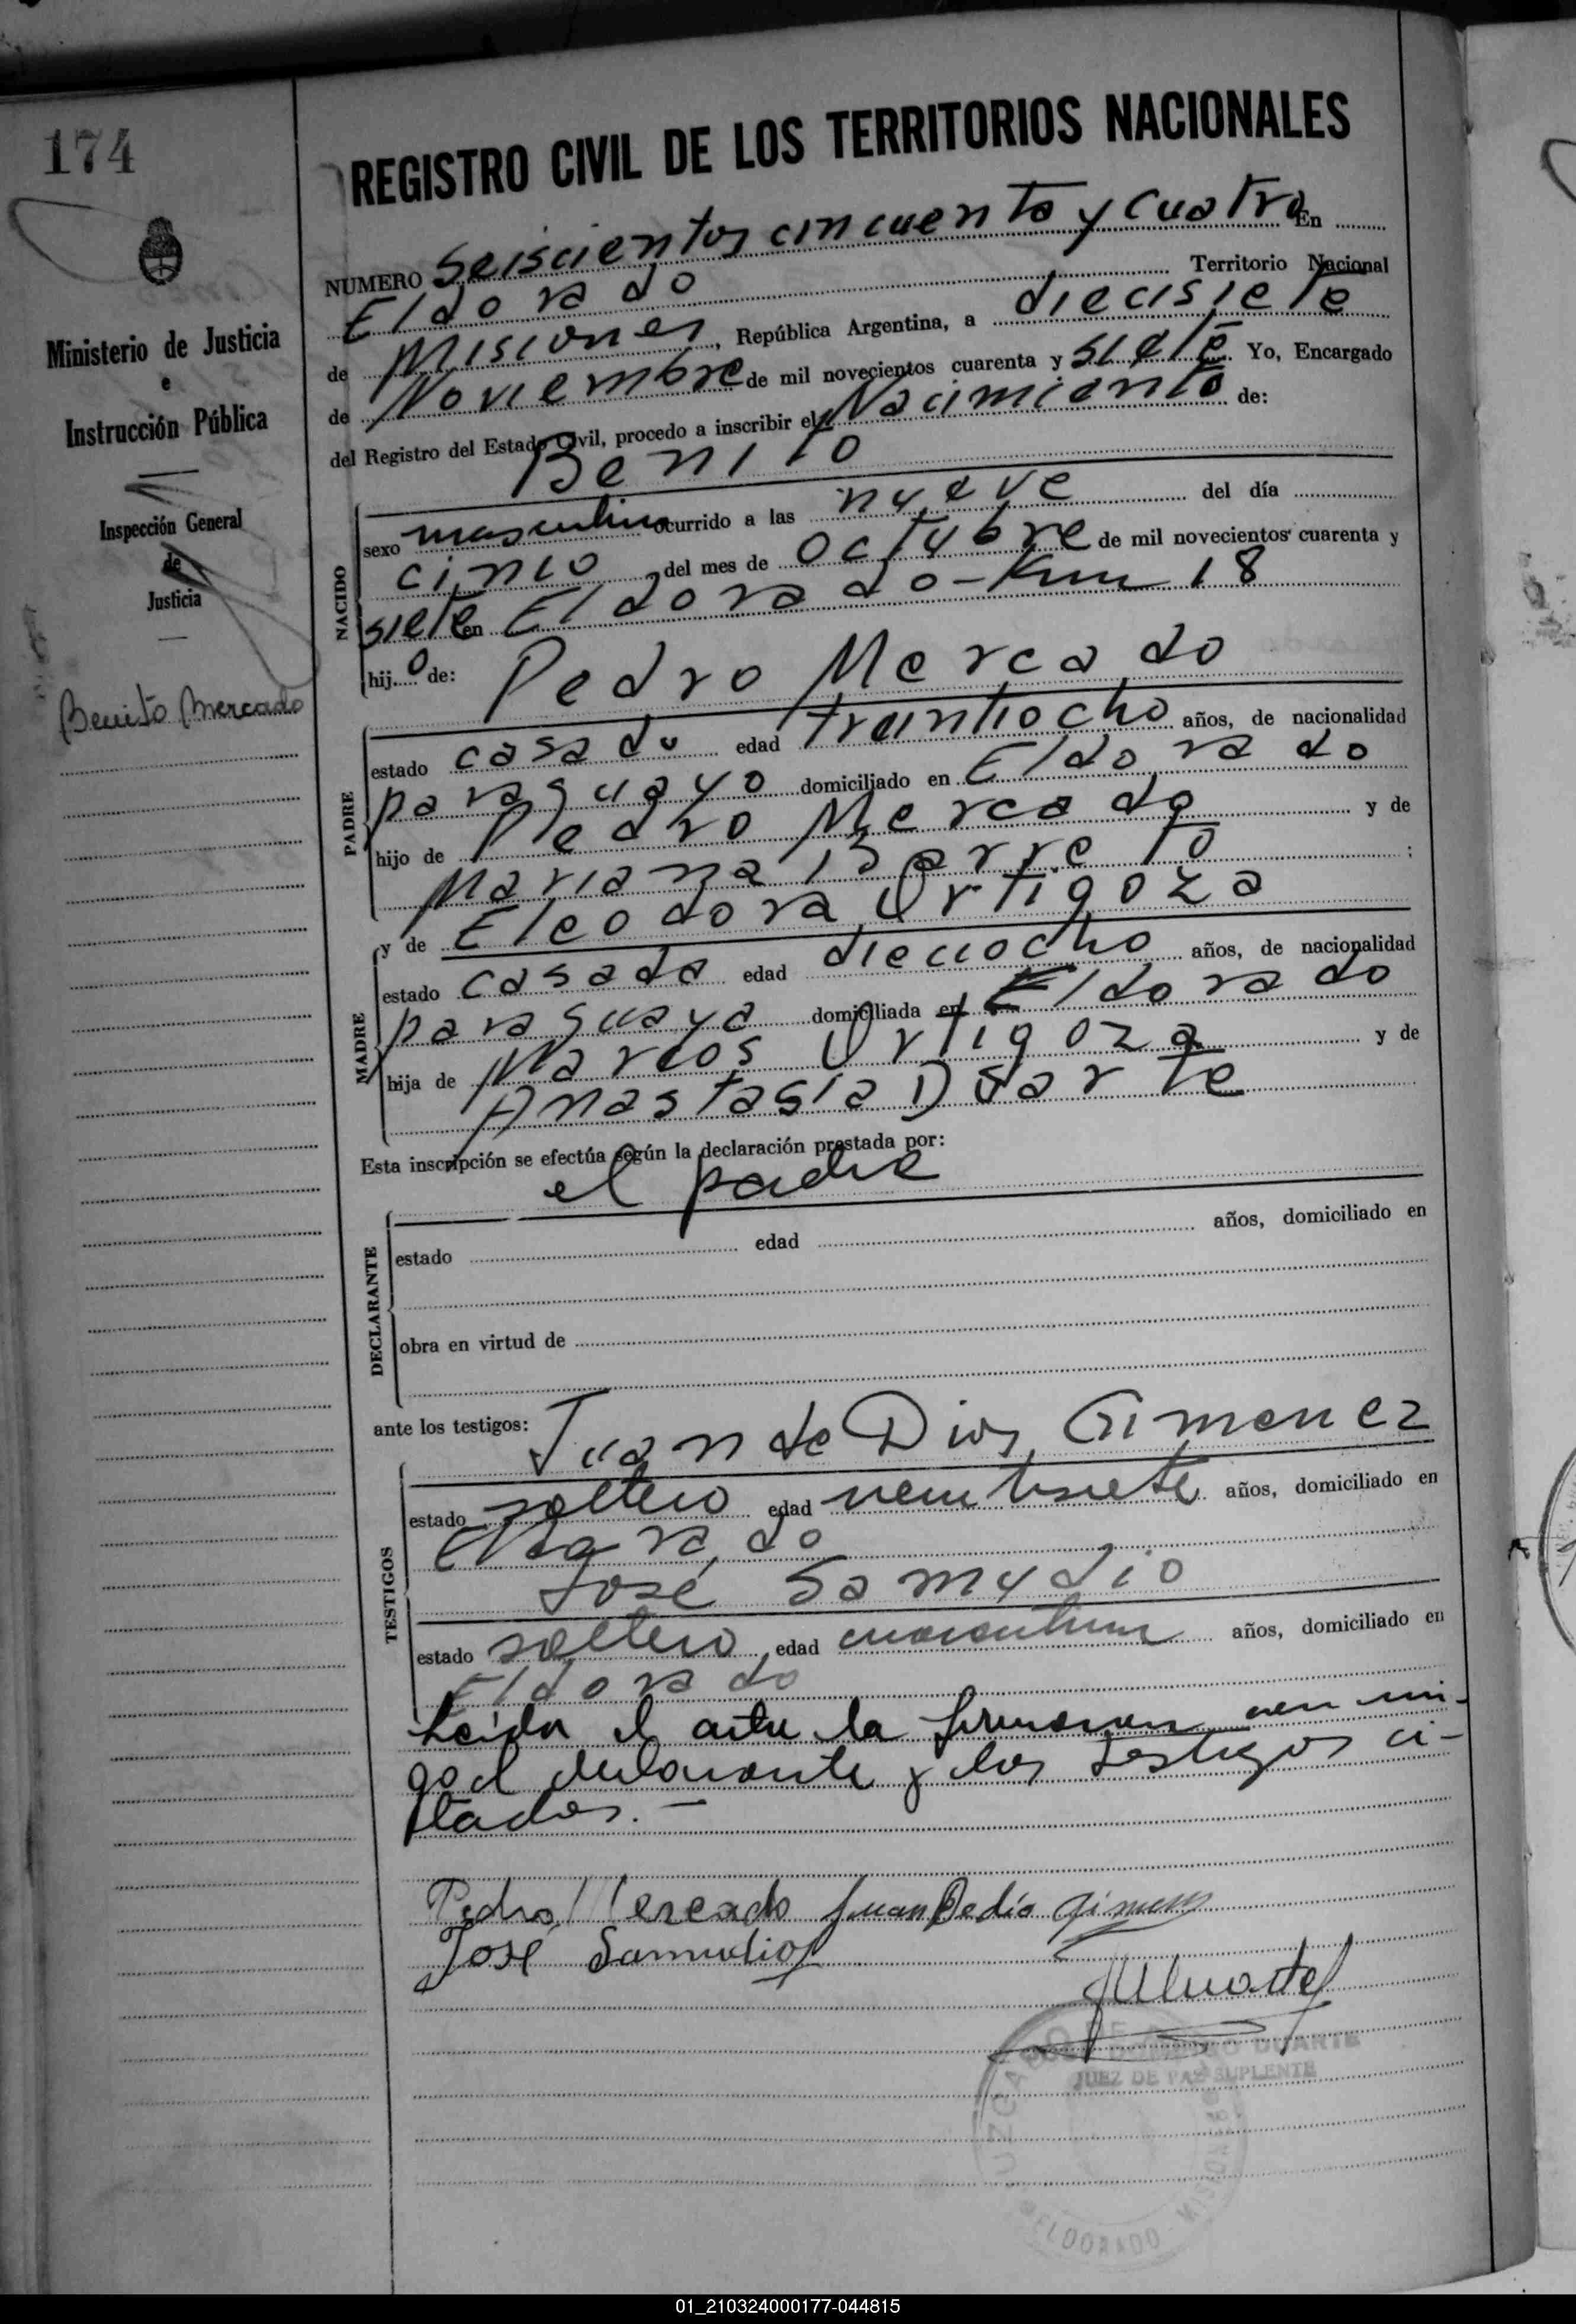 174
REGISTRO CIVIL DE LOS TERRITORIOS NACIONALES
Ministerio de Justicia
e
Instrucción Pública
Inspección General
de
Justicia
Benito Mercado
NUMERO Seiscientos cincuenta y cuatro En
Eldorado Territorio Nacional
de Misiones, República Argentina, a diecisiete
de Noviembre de mil novecientos cuarenta y siete Yo, Encargado
del Registro del Estado Civil, procedo a inscribir el Nacimiento de:
Benito
NACIDO
sexo masculino ocurrido a las nueve del día
cinco del mes de Octubre de mil novecientos cuarenta y
siete en Eldorado - Km 18
hij o de: Pedro Mercado
PADRE
estado casado edad treintiocho años, de nacionalidad
paraguayo domiciliado en Eldorado
hijo de Pedro Mercado y de
Mariana Barreto ;
y de Eleodora Ortigoza
MADRE
estado casada edad dieciocho años, de nacionalidad
paraguaya domiciliada en Eldorado
hija de Marcos Ortigoza y de
Anastasia Duarte
Esta inscripción se efectúa según la declaración prestada por:
el padre
DECLARANTE
estado edad años, domiciliado en
obra en virtud de
ante los testigos: Juan de Dios Gimenez
TESTIGOS
estado soltero edad veintisiete años, domiciliado en
Eldorado
José Samudio
estado soltero edad cuarentiun años, domiciliado en
Eldorado
Leida el acta la firmaron con mi-
go el declarante y los testigos ci-
tados. -
Pedro Mercado Juan Dedio Gimenez
José Samudio
DUARTE
JUEZ DE PAZ SUPLENTE
ELDORADO
01_210324000177-044815